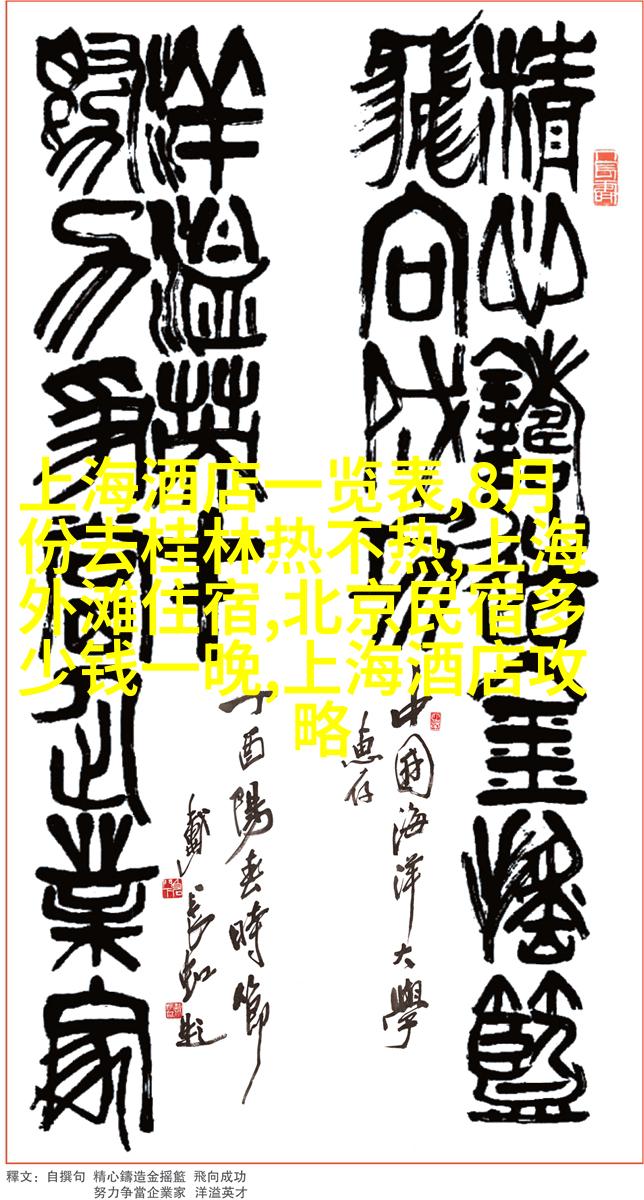 精心鑄造金搖籃
飛向成功
中國海洋大學
惠存
努力爭當企業家
洋溢英才
丁酉陽春時節
戴長虹題
上海酒店一览表,8月
份去桂林热不热,上海
外滩住宿,北京民宿多
少钱一晚,上海酒店攻
略
釋文：自撰句 精心鑄造金摇籃 飛向成功
努力争當企業家 洋溢英才